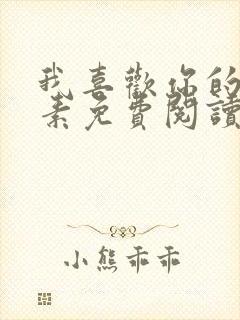 我喜歡你的
素免費閱讀
小熊乖乖